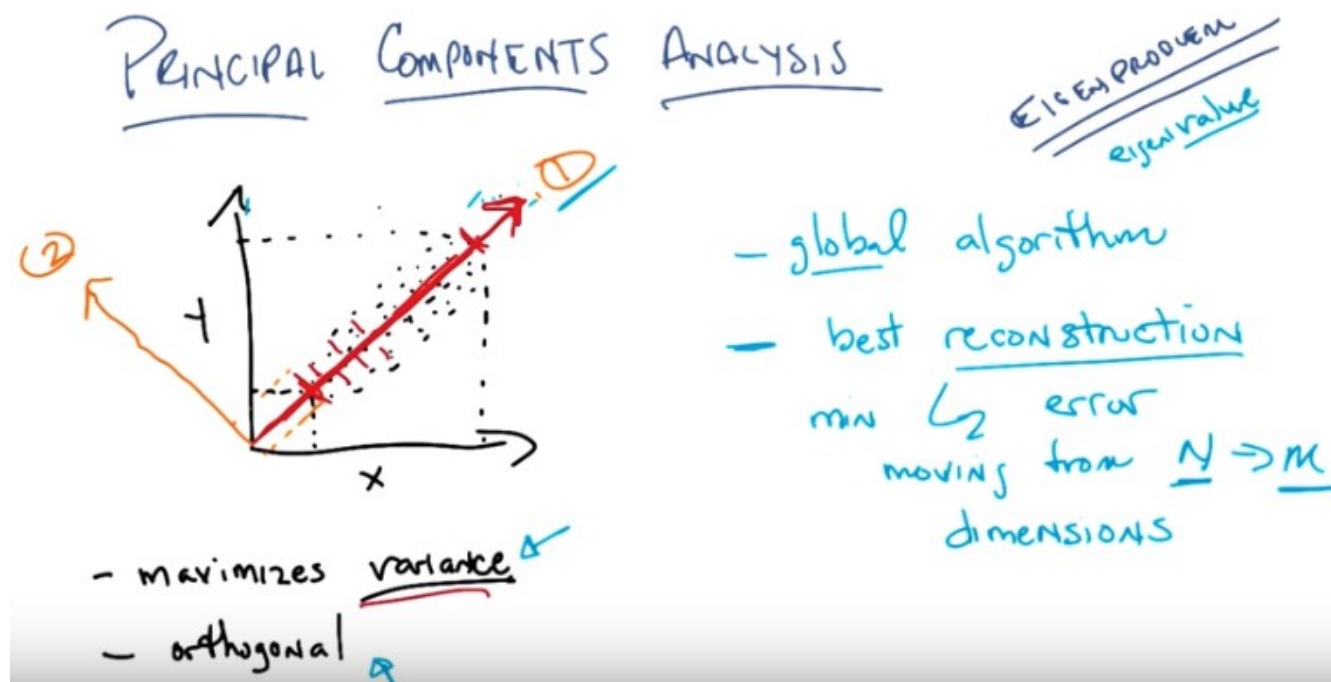 PRINCIPAL COMPONENTS ANALYSIS
EIGENPROBLEM
eigenvalue
1
2
Y
X
- maximizes variance
- orthogonal
- global algorithm
- best reconstruction
min error
moving from N → M
dimensions